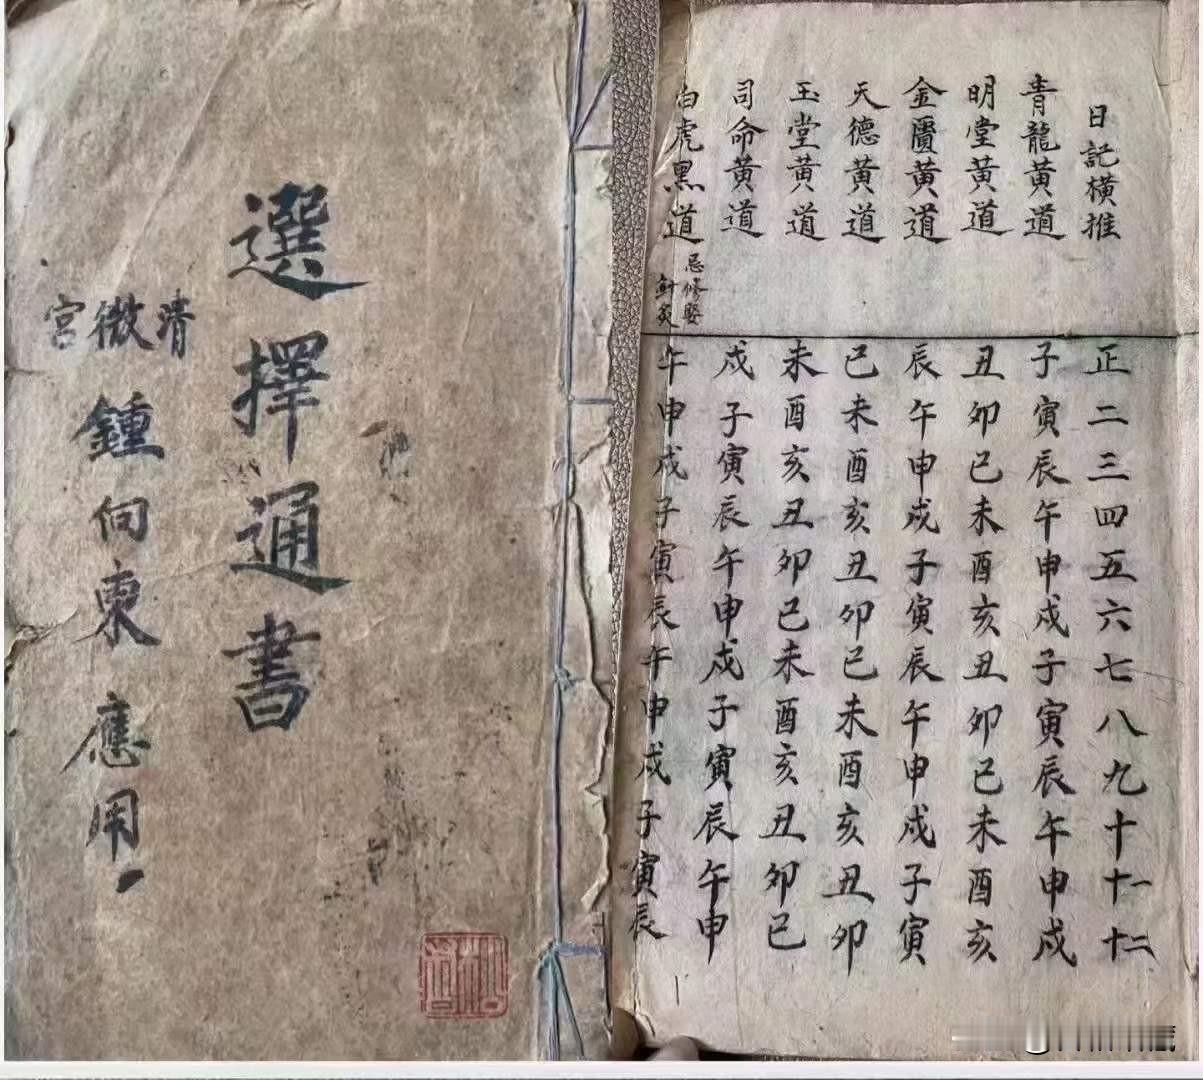 選擇通書
清微宮
鍾向東應用
日記橫推
正二三四五六七八九十十一十二
青龍黃道
子寅辰午申戌子寅辰午申戌
明堂黃道
丑卯巳未酉亥丑卯巳未酉亥
金匱黃道
辰午申戌子寅辰午申戌子寅
天德黃道
巳未酉亥丑卯巳未酉亥丑卯
玉堂黃道
未酉亥丑卯巳未酉亥丑卯巳
司命黃道
戌子寅辰午申戌子寅辰午申
白虎黑道
忌修娶
針灸
午申戌子寅辰午申戌子寅辰